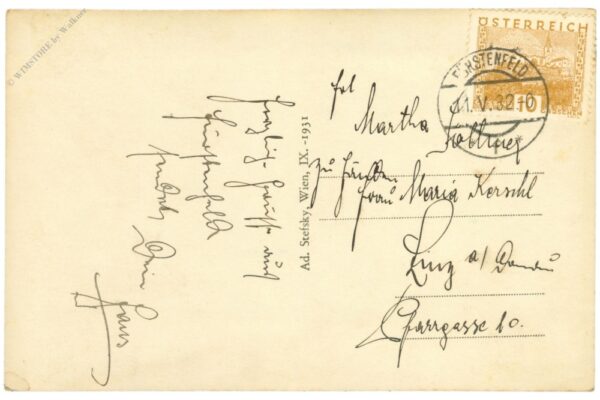 © WIMSTORE by Walkner
ÖSTERREICH
FÜRSTENFELD
11.V.32-10
Frl
Martha
Kollmer
zu Handen
Frau Maria Kerschl
Linz a/ Donau
Pfarrgasse 10.
Ad. Stefsky, Wien, IX.-1931
Herzlig. Grüsse aus
Fürstenfeld
sendet Dein
Hans